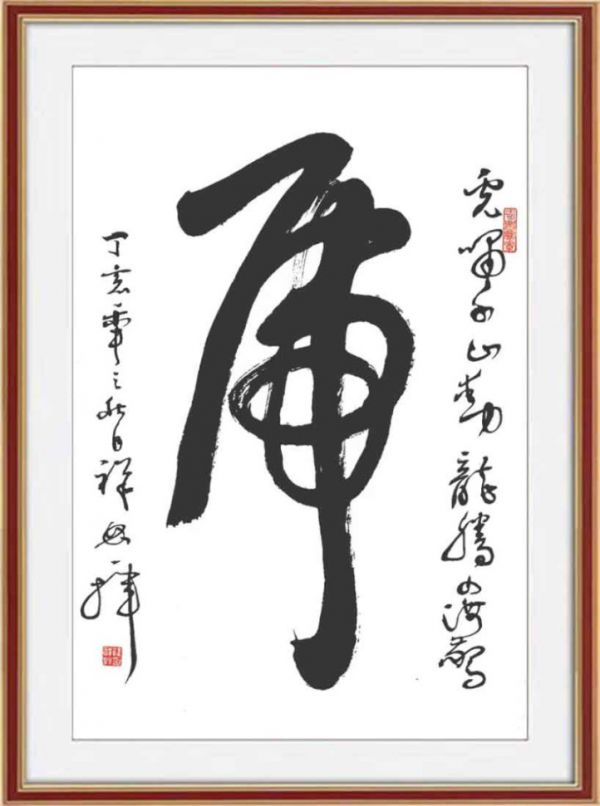 虎嘯山動龍騰四海驚
虎
丁亥年之秋日祥揮